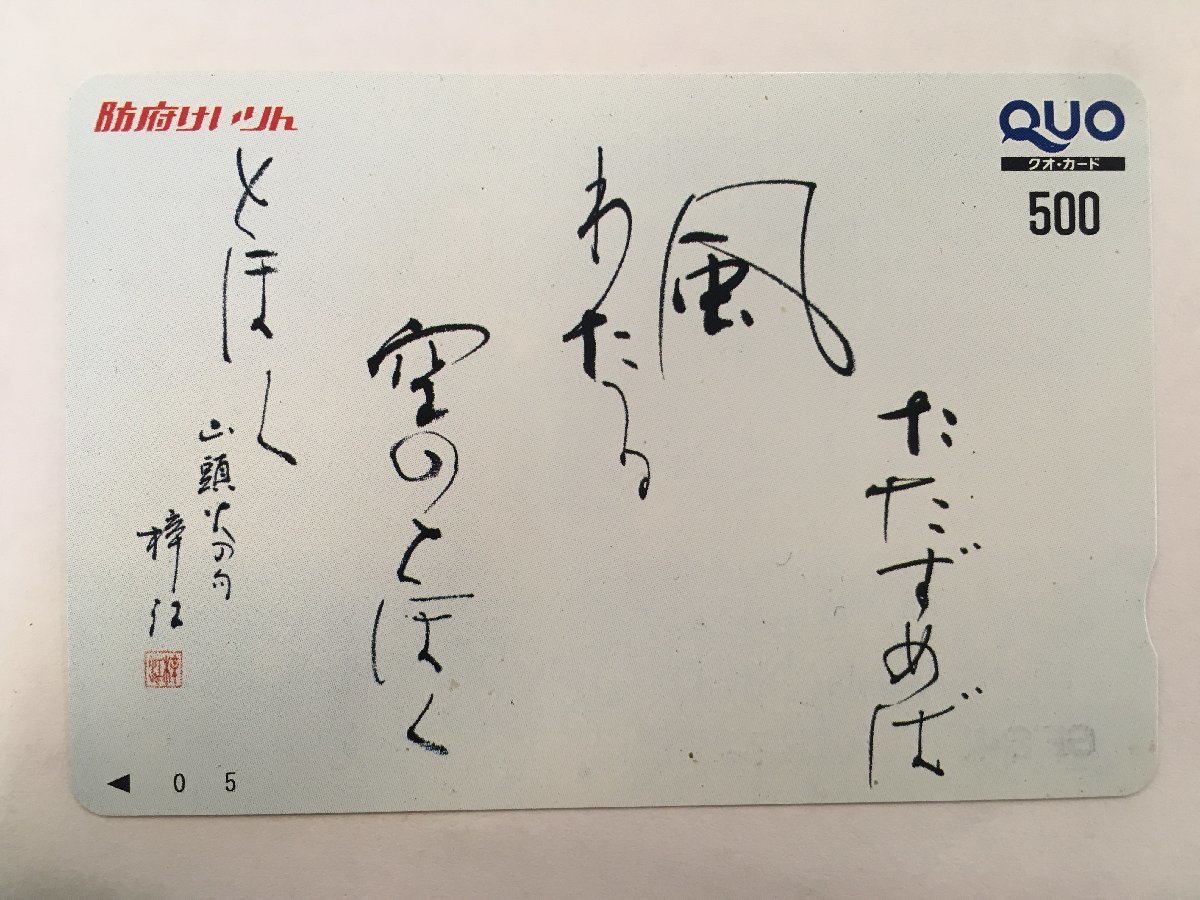 防府けいりん
QUO
クオ・カード
500
たたずめば
風
わたる
空のとほく
とほく
山頭火の句
梓江
梓江
◀ 0 5